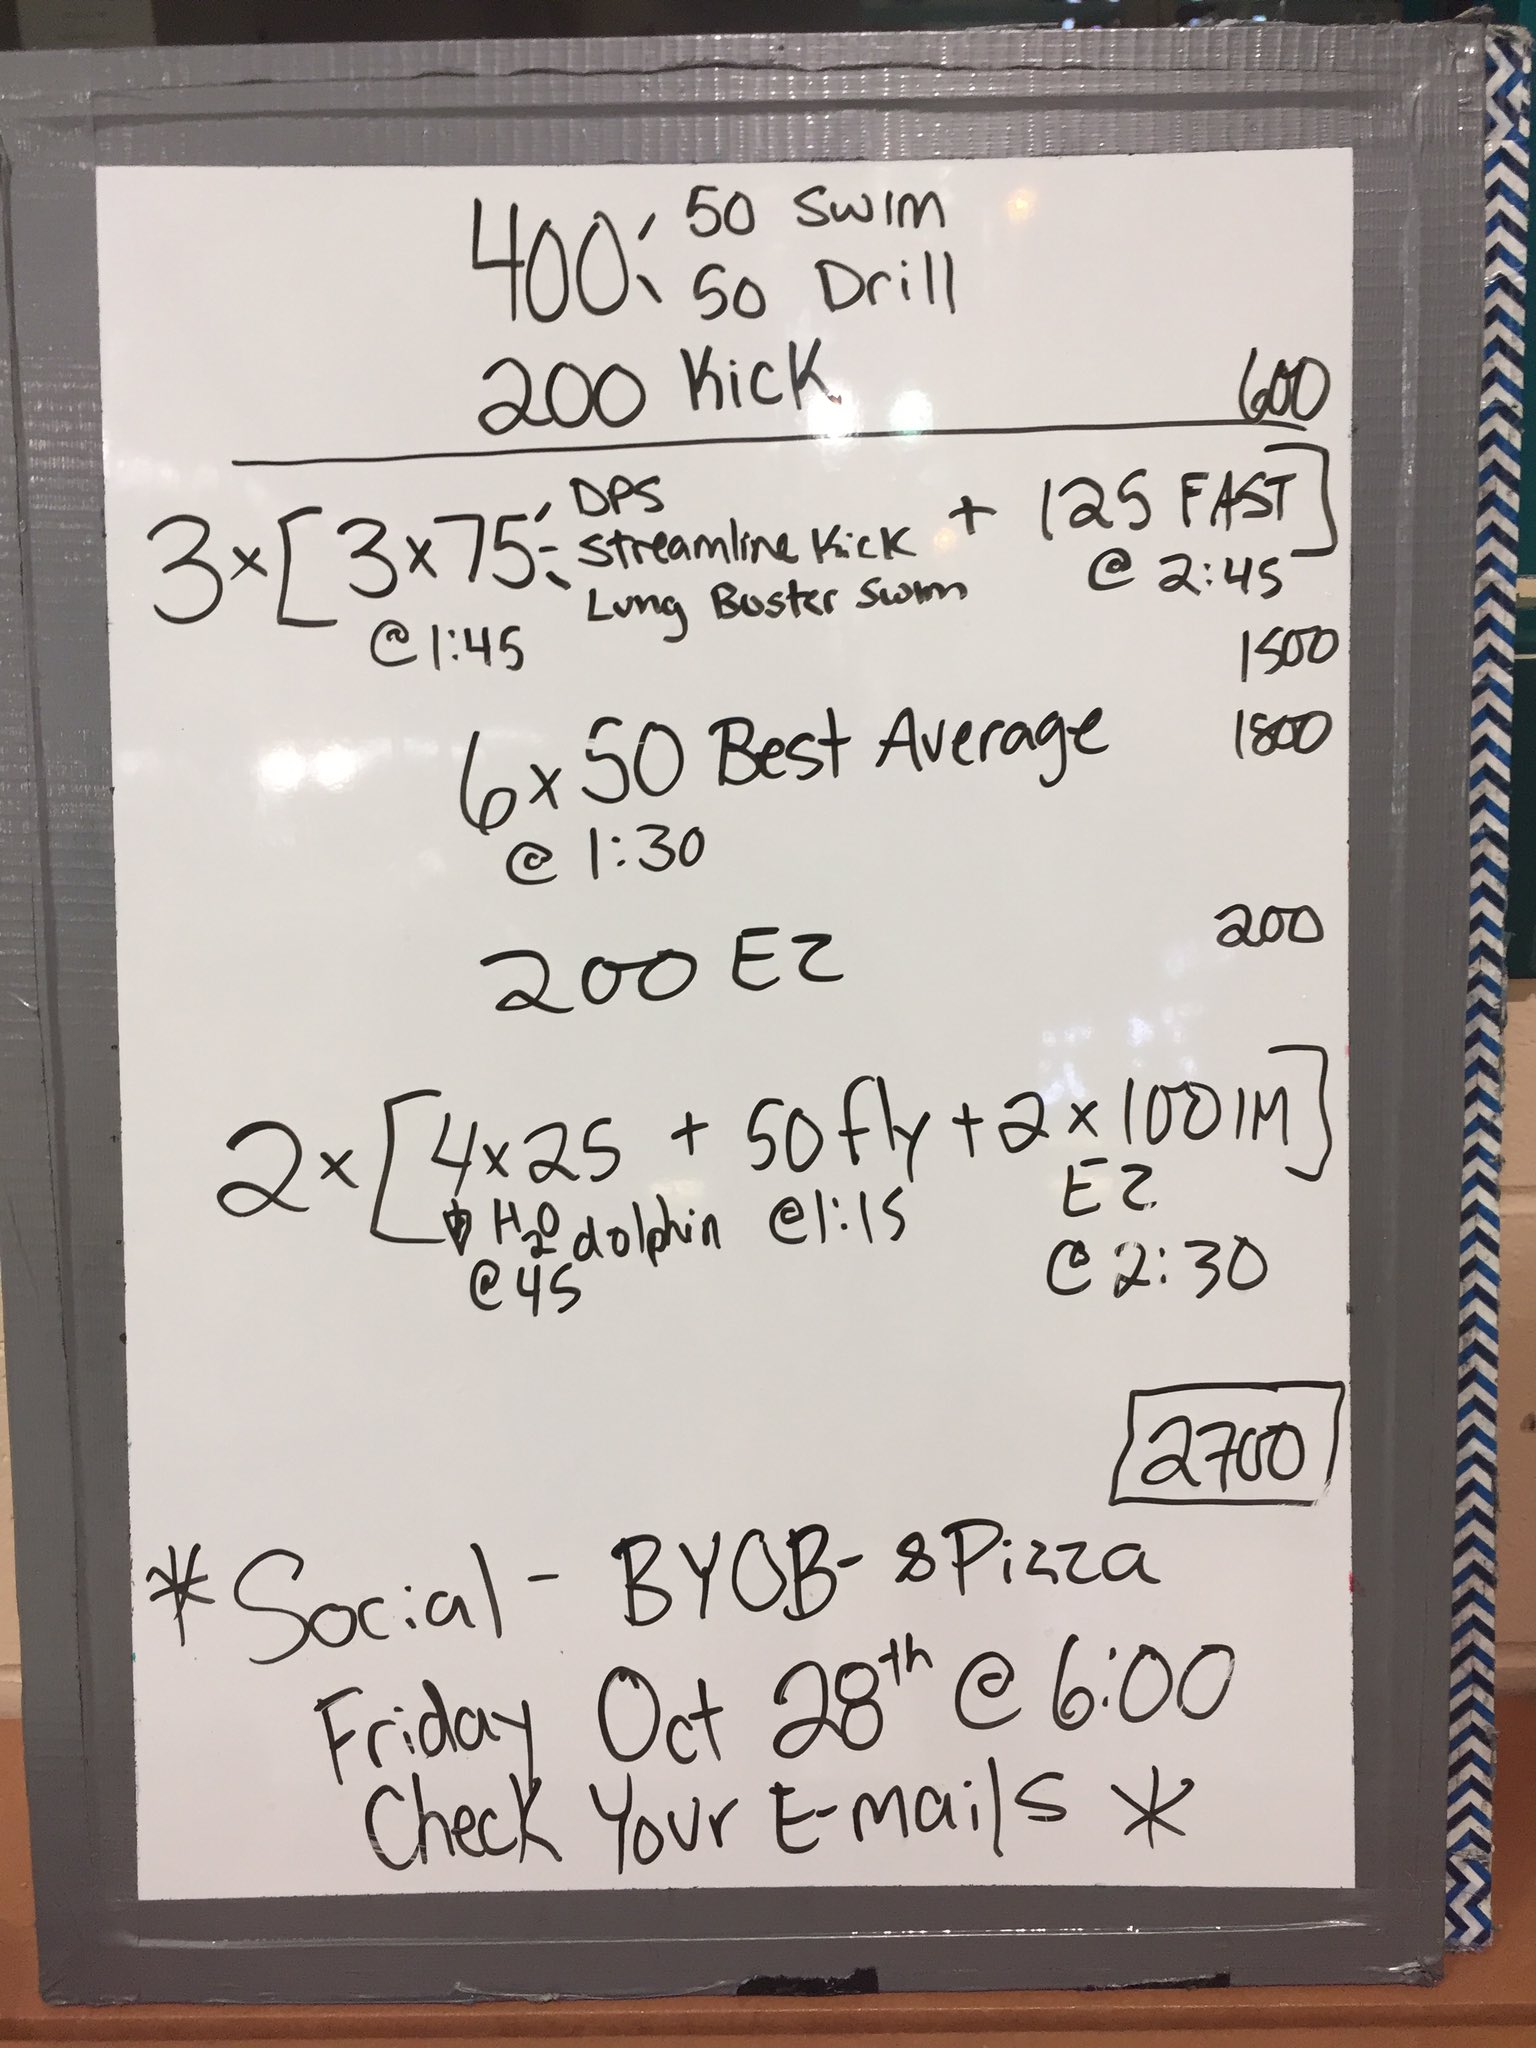 400: 50 Swim
50 Drill
200 Kick 600
3x[3x75: DPS + 125 FAST]
Streamline Kick
Lung Buster Swim
@1:45 @ 2:45
1500
6x50 Best Average 1800
@ 1:30
200 EZ 200
2x[4x25 + 50 fly + 2x100 IM]
↓ H2O dolphin @1:15 EZ
@45 @ 2:30
2700
*Social - BYOB - & Pizza
Friday Oct 28th @ 6:00
Check Your E-mails *